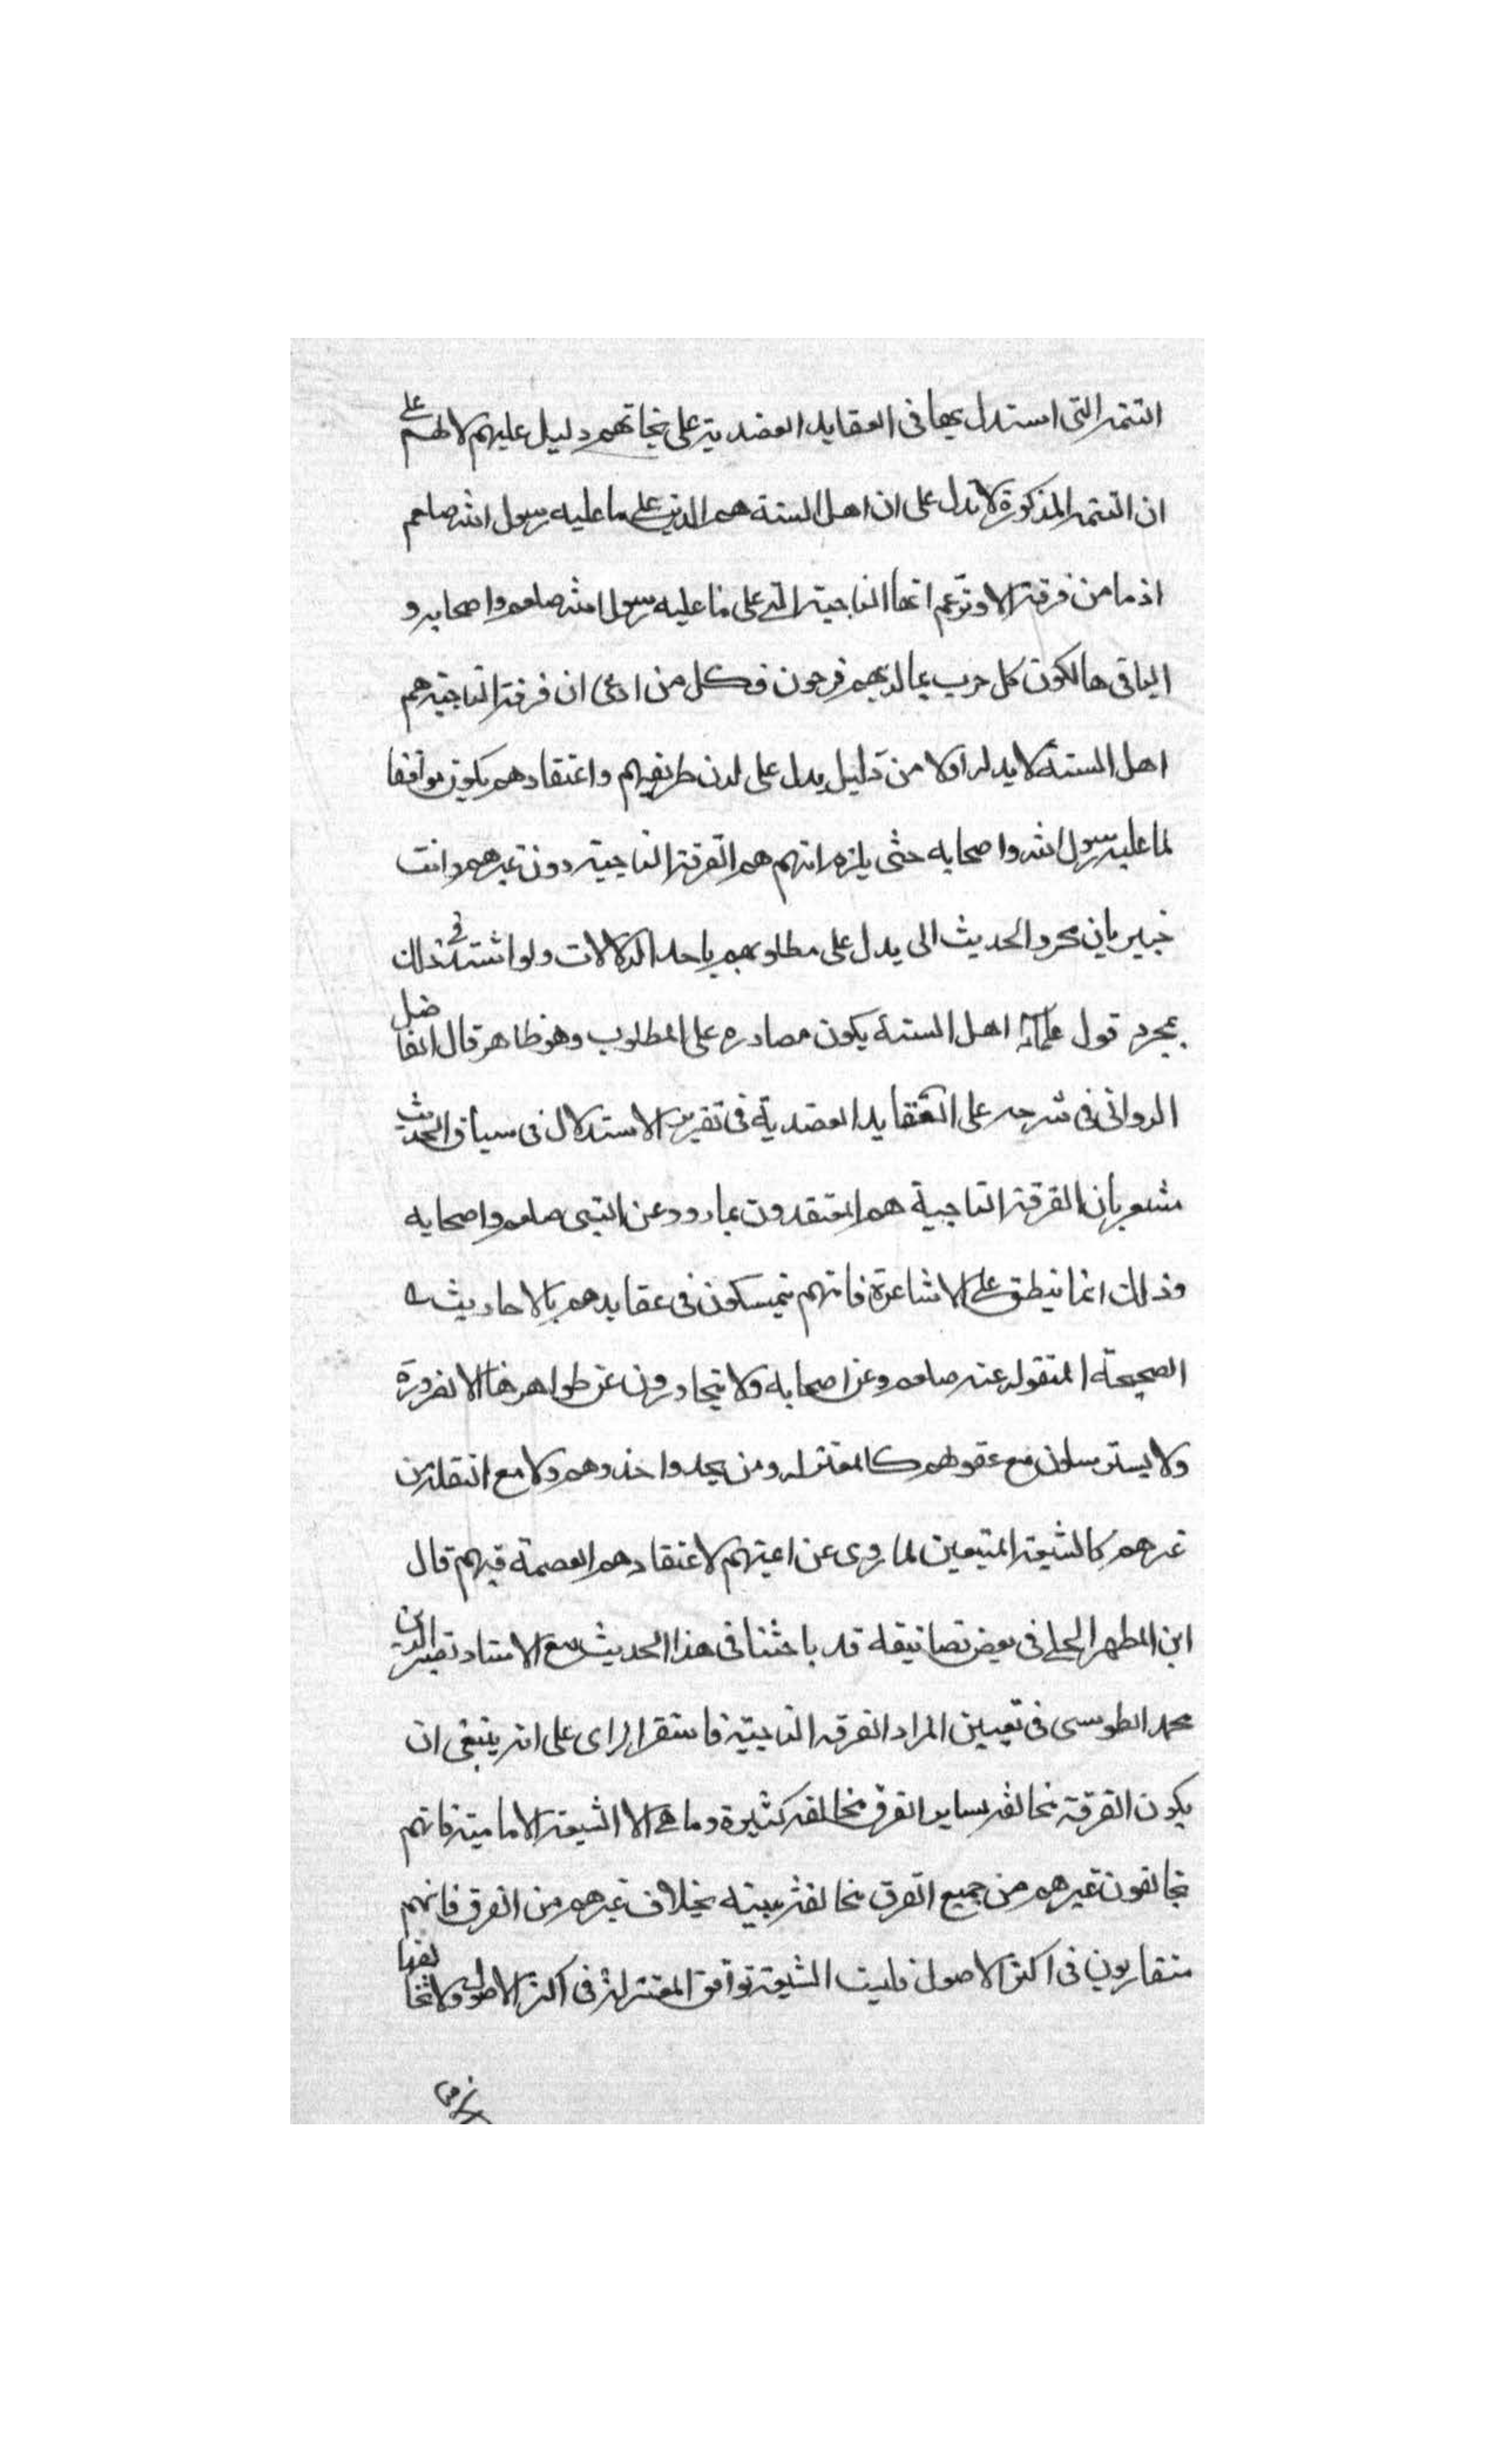 التتمة التى استدل بها فى العقايد العضدية على نجاتهم دليل عليهم لا لهم على
ان التتمة المذكورة لا تدل على ان اهل السنة هم الذين على ما عليه رسول الله صلعم
اذ ما من فرقة الا وتزعم انها الناجية التى على ما عليه رسول الله صلعم واصحابه و
الباقى هالكون كل حزب بما لديهم فرحون فكل من ادعى ان فرقة الناجية هم
اهل السنة لا بد له اولا من دليل يدل على ان طريقهم واعتقادهم يكون موافقا
لما عليه رسول الله واصحابه حتى يلزم انهم هم الفرقة الناجية دون غيرهم وانت
خبير بان مجرد الحديث الى يدل على مطلوبهم باحد الدلالات ولو استند فى ذلك
بمجرد قول علماء اهل السنة يكون مصادره على المطلوب وهو ظاهر قال الفاضل
الدوانى فى شرحه على العقايد العضدية فى تقرير الاستدلال فى سياق الحديث
مشعر بان الفرقة الناجية هم المعتقدون بما روو عن النبى صلعم واصحابه
وذلك انما ينطبق على الاشاعرة فانهم يتمسكون فى عقايدهم بالاحاديث
الصحيحة المنقوله عنه صلعم وعن اصحابه ولا يتجاوزون عن ظواهرها الا لضرورة
ولا يسترسلون مع عقولهم كالمعتزله ومن يحذوا حذوهم ولا مع النقل من
غيرهم كالشيعة المتبعين لما روى عن ائمتهم لاعتقادهم العصمة فيهم قال
ابن المطهر الحلى فى بعض تصانيفه قد باحثنا فى هذا الحديث مع الاستاد نصير الدين
محمد الطوسى فى تعيين المراد الفرقه الناجية فاستقر الراى على انه ينبغى ان
يكون الفرقة مخالفه لساير الفرق مخالفه كثيرة وما هى الا الشيعة الامامية فانهم
يخالفون غيرهم من جميع الفرق مخالفة بينه بخلاف غيرهم من الفرق فانهم
متقاربون فى اكثر الاصول فليت الشيعة توافق المعتزلة فى اكثر الاصول ولا تخالفها